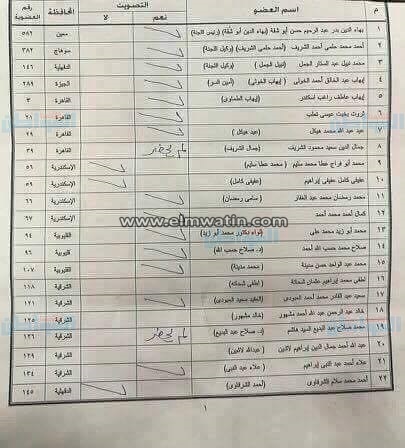 م اسم العضو التصويت نعم لا المحافظة رقم العضوية
١ بهاء الدين بدر عبد الرحيم حسن أبو شقة (بهاء الدين أبو شقة) (رئيس اللجنة) معين ٥٨٢
٢ أحمد محمد حلمي أحمد الشريف (أحمد حلمي الشريف) (وكيل اللجنة) سوهاج ٣٨٢
٣ محمد نبيل عبد الستار الجمل (نبيل الجمل) (وكيل اللجنة) الدقهلية ١٤٦
٤ إيهاب عبد الخالق أحمد الخولى (إيهاب الخولى) (أمين السر) الجيزة ٢٨٩
٥ إيهاب عاطف راغب اسكندر (إيهاب الطماوى) القاهرة ٣
٦ ثروت بخيت عيسى تعلب القاهرة ٢١
٧ عبد الله محمد هيكل (عبد هيكل) القاهرة ٢٩
٨ جمال الدين سعيد محمود الشريف (جمال الشريف) لم يحضر القاهرة ٣٩
٩ محمد أبو فراج عطا محمد سليم (محمد عطا سليم) الإسكندرية ٥٦
١٠ عفيفى كامل عفيفى إبراهيم (عفيفى كامل) الإسكندرية ٥٩
١١ محمد رمضان محمد عبد الغفار (سامى رمضان) الإسكندرية ٦٦
١٢ كمال أحمد محمد أحمد الإسكندرية ٦٧
www.elmwatin.com
١٣ محمد أبو زيد محمد على (لواء دكتور محمد أبو زيد) القليوبية ٩٤
١٤ صلاح محمد حسب الله أحمد (د. صلاح حسب الله) قليوبية ٩٦
١٥ محمد عبد الواحد حسن مدينة (محمد مدينة) القليوبية ١٠٧
١٦ لطفى محمد إبراهيم عثمان شحاتة (لطفى شحاتة) الشرقية ١١٨
١٧ سعيد عبد القادر محمد أحمد العبودى (العقيد سعيد العبودى) الشرقية ١٢١
١٨ خالد عبد الرحمن عبد الله أحمد مشهور (خالد مشهور) الشرقية ١٢٥
١٩ محمد صلاح عبد البديع السيد هاشم (د. صلاح عبد البديع) لم يحضر الشرقية ١٢٦
٢٠ عبد الله أحمد جمال الدين إبراهيم لاشين (عبدالله لاشين) الشرقية ١٢٩
٢١ علاء أحمد عبد النبى إبراهيم (علاء عبد النبى) الشرقية ١٣٤
٢٢ أحمد محمد سلام الشرقاوى (أحمد الشرقاوى) الدقهلية ١٤٥
١